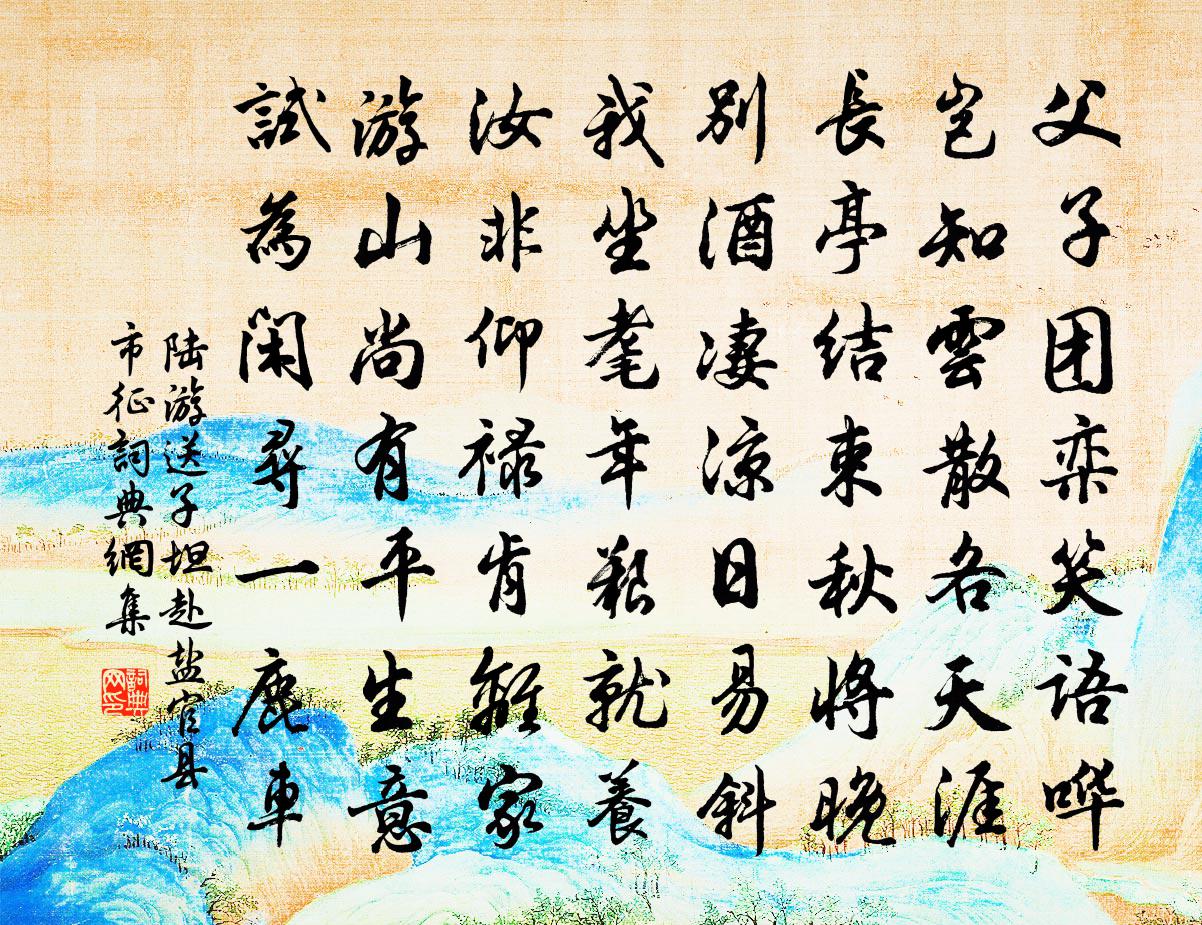 父子团栾笑语哗
岂知雲散各天涯
長亭结束秋將晚
别酒凄凉日易斜
我坐耄年艱就養
汝非仰禄肯離家
游山尚有平生意
試為闲尋一鹿車
陆游送子坦赴盐官县
市征詞典網集
詞典网印